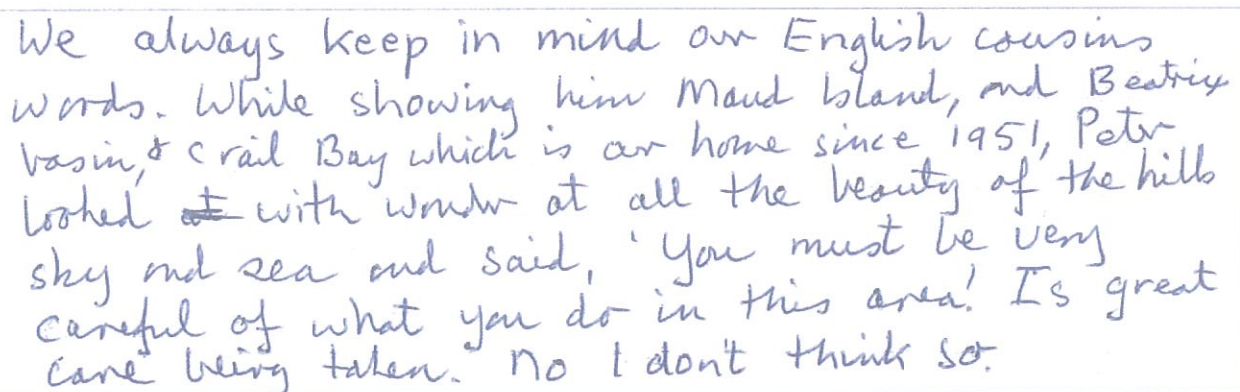 We always keep in mind our English cousins
words. While showing him Maud Island, and Beatrix
basin, & Crail Bay which is our home since 1951, Peter
looked at with wonder at all the beauty of the hills
sky and sea and said, 'You must be very
careful of what you do in this area!' Is great
care being taken. No I don't think so.